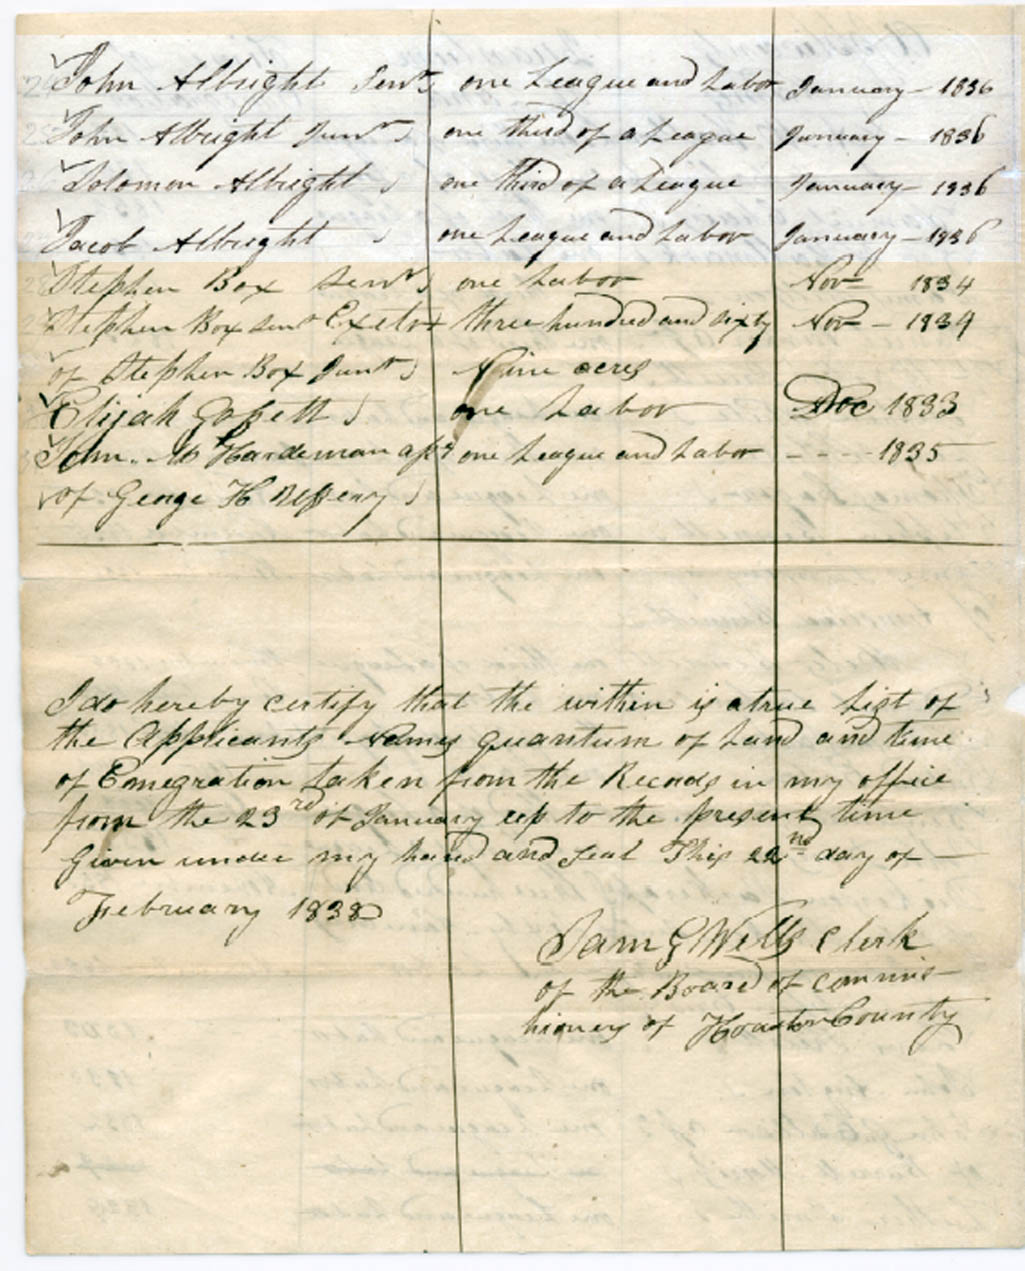 John Albright Senr) one League and Labor January - 1836
John Albright Junr) one third of a League January - 1836
Solomon Albright ) one third of a League January - 1836
Jacob Albright ) one League and Labor January - 1836
Stephen Box Senr) one Labor Nov 1834
Stephen Box Senr three hundred and sixty Nov - 1834
of Stephen Box Junr) Nine acres
Elijah Gossett ) one Labor Dec 1833
John. Hardeman one League and Labor - - - - 1835
of George H
I do hereby certify that the within is a true List of
the Applicants Names quantum of Land and time
of Emegration taken from the Records in my office
from the 23rd of January up to the present time
Given under my hand and seal This 22nd day of —
February 1838
Sam G Wells Clerk
of the Board of Commis-
hioners of Houston County